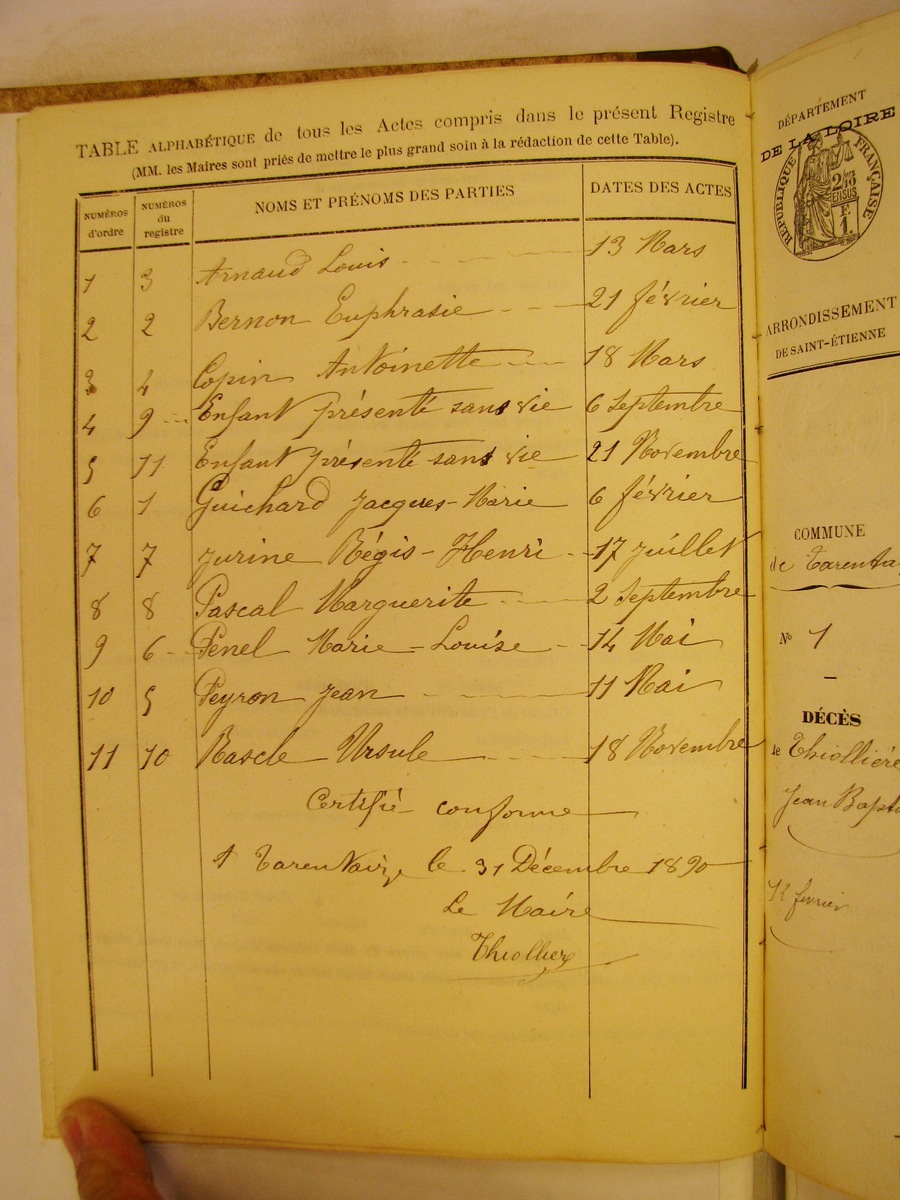 TABLE ALPHABÉTIQUE de tous les Actes compris dans le présent Registre
(MM. les Maires sont priés de mettre le plus grand soin à la rédaction de cette Table).
NUMÉROS d'ordre NUMÉROS du registre NOMS ET PRÉNOMS DES PARTIES DATES DES ACTES
1 3 Arnaud Louis 13 Mars
2 2 Bernon Euphrasie 21 février
3 4 Copin Antoinette 18 Mars
4 9 Enfant présenté sans vie 6 Septembre
5 11 Enfant présenté sans vie 21 Novembre
6 1 Guichard Jacques-Marie 6 février
7 7 Jurine Régis-Henri 17 Juillet
8 8 Pascal Marguerite 2 Septembre
9 6 Penel Marie-Louise 14 Mai
10 5 Peyron Jean 11 Mai
11 10 Rascle Ursule 18 Novembre
Certifié conforme
A Tarentaize le 31 Décembre 1890
Le Maire
Thiollier
DÉPARTEMENT
DE LA LOIRE
RÉPUBLIQUE FRANÇAISE
ARRONDISSEMENT
DE SAINT-ÉTIENNE
COMMUNE
de Tarenta
No 1
DÉCÈS
de Thiollière
Jean Bapti
12 février